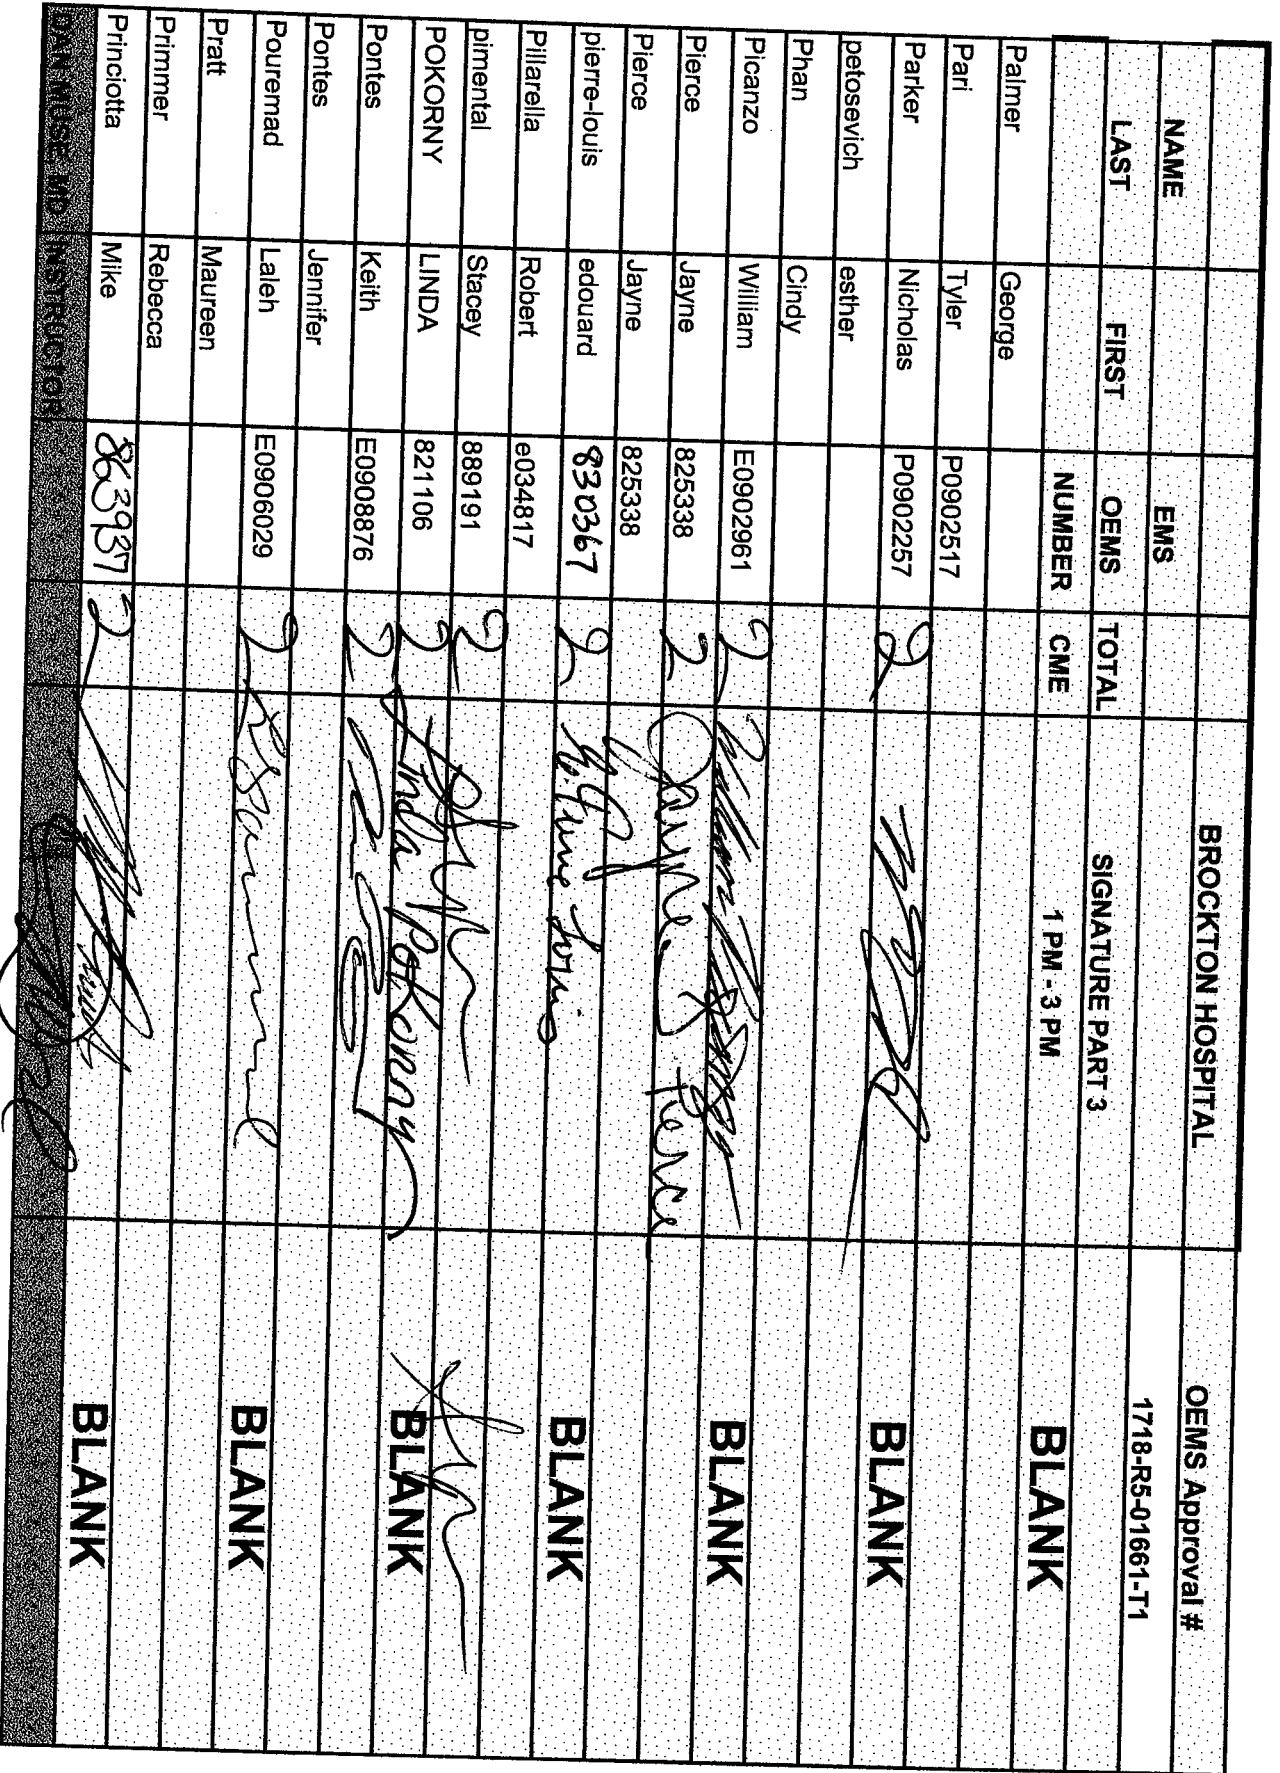 BROCKTON HOSPITAL OEMS Approval #
NAME EMS 1718-R5-01661-T1
LAST FIRST OEMS TOTAL SIGNATURE PART 3
NUMBER CME 1 PM - 3 PM
BLANK
Palmer George
Pari Tyler P0902517
Parker Nicholas P0902257 2
BLANK
petosevich esther
Phan Cindy
Picanzo William E0902961 2
BLANK
Pierce Jayne 825338 2 Jayne Pierce
Pierce Jayne 825338
pierre-louis edouard 830367 2
BLANK
Pillarella Robert e034817
pimental Stacey 889191 2
POKORNY LINDA 821106 2 Linda Pokorny
BLANK
Pontes Keith E0908876 2
Pontes Jennifer
Pouremad Laleh E0906029 2
BLANK
Pratt Maureen
Primmer Rebecca
Princiotta Mike 863937 2
BLANK
DAN MUSE, MD INSTRUCTOR